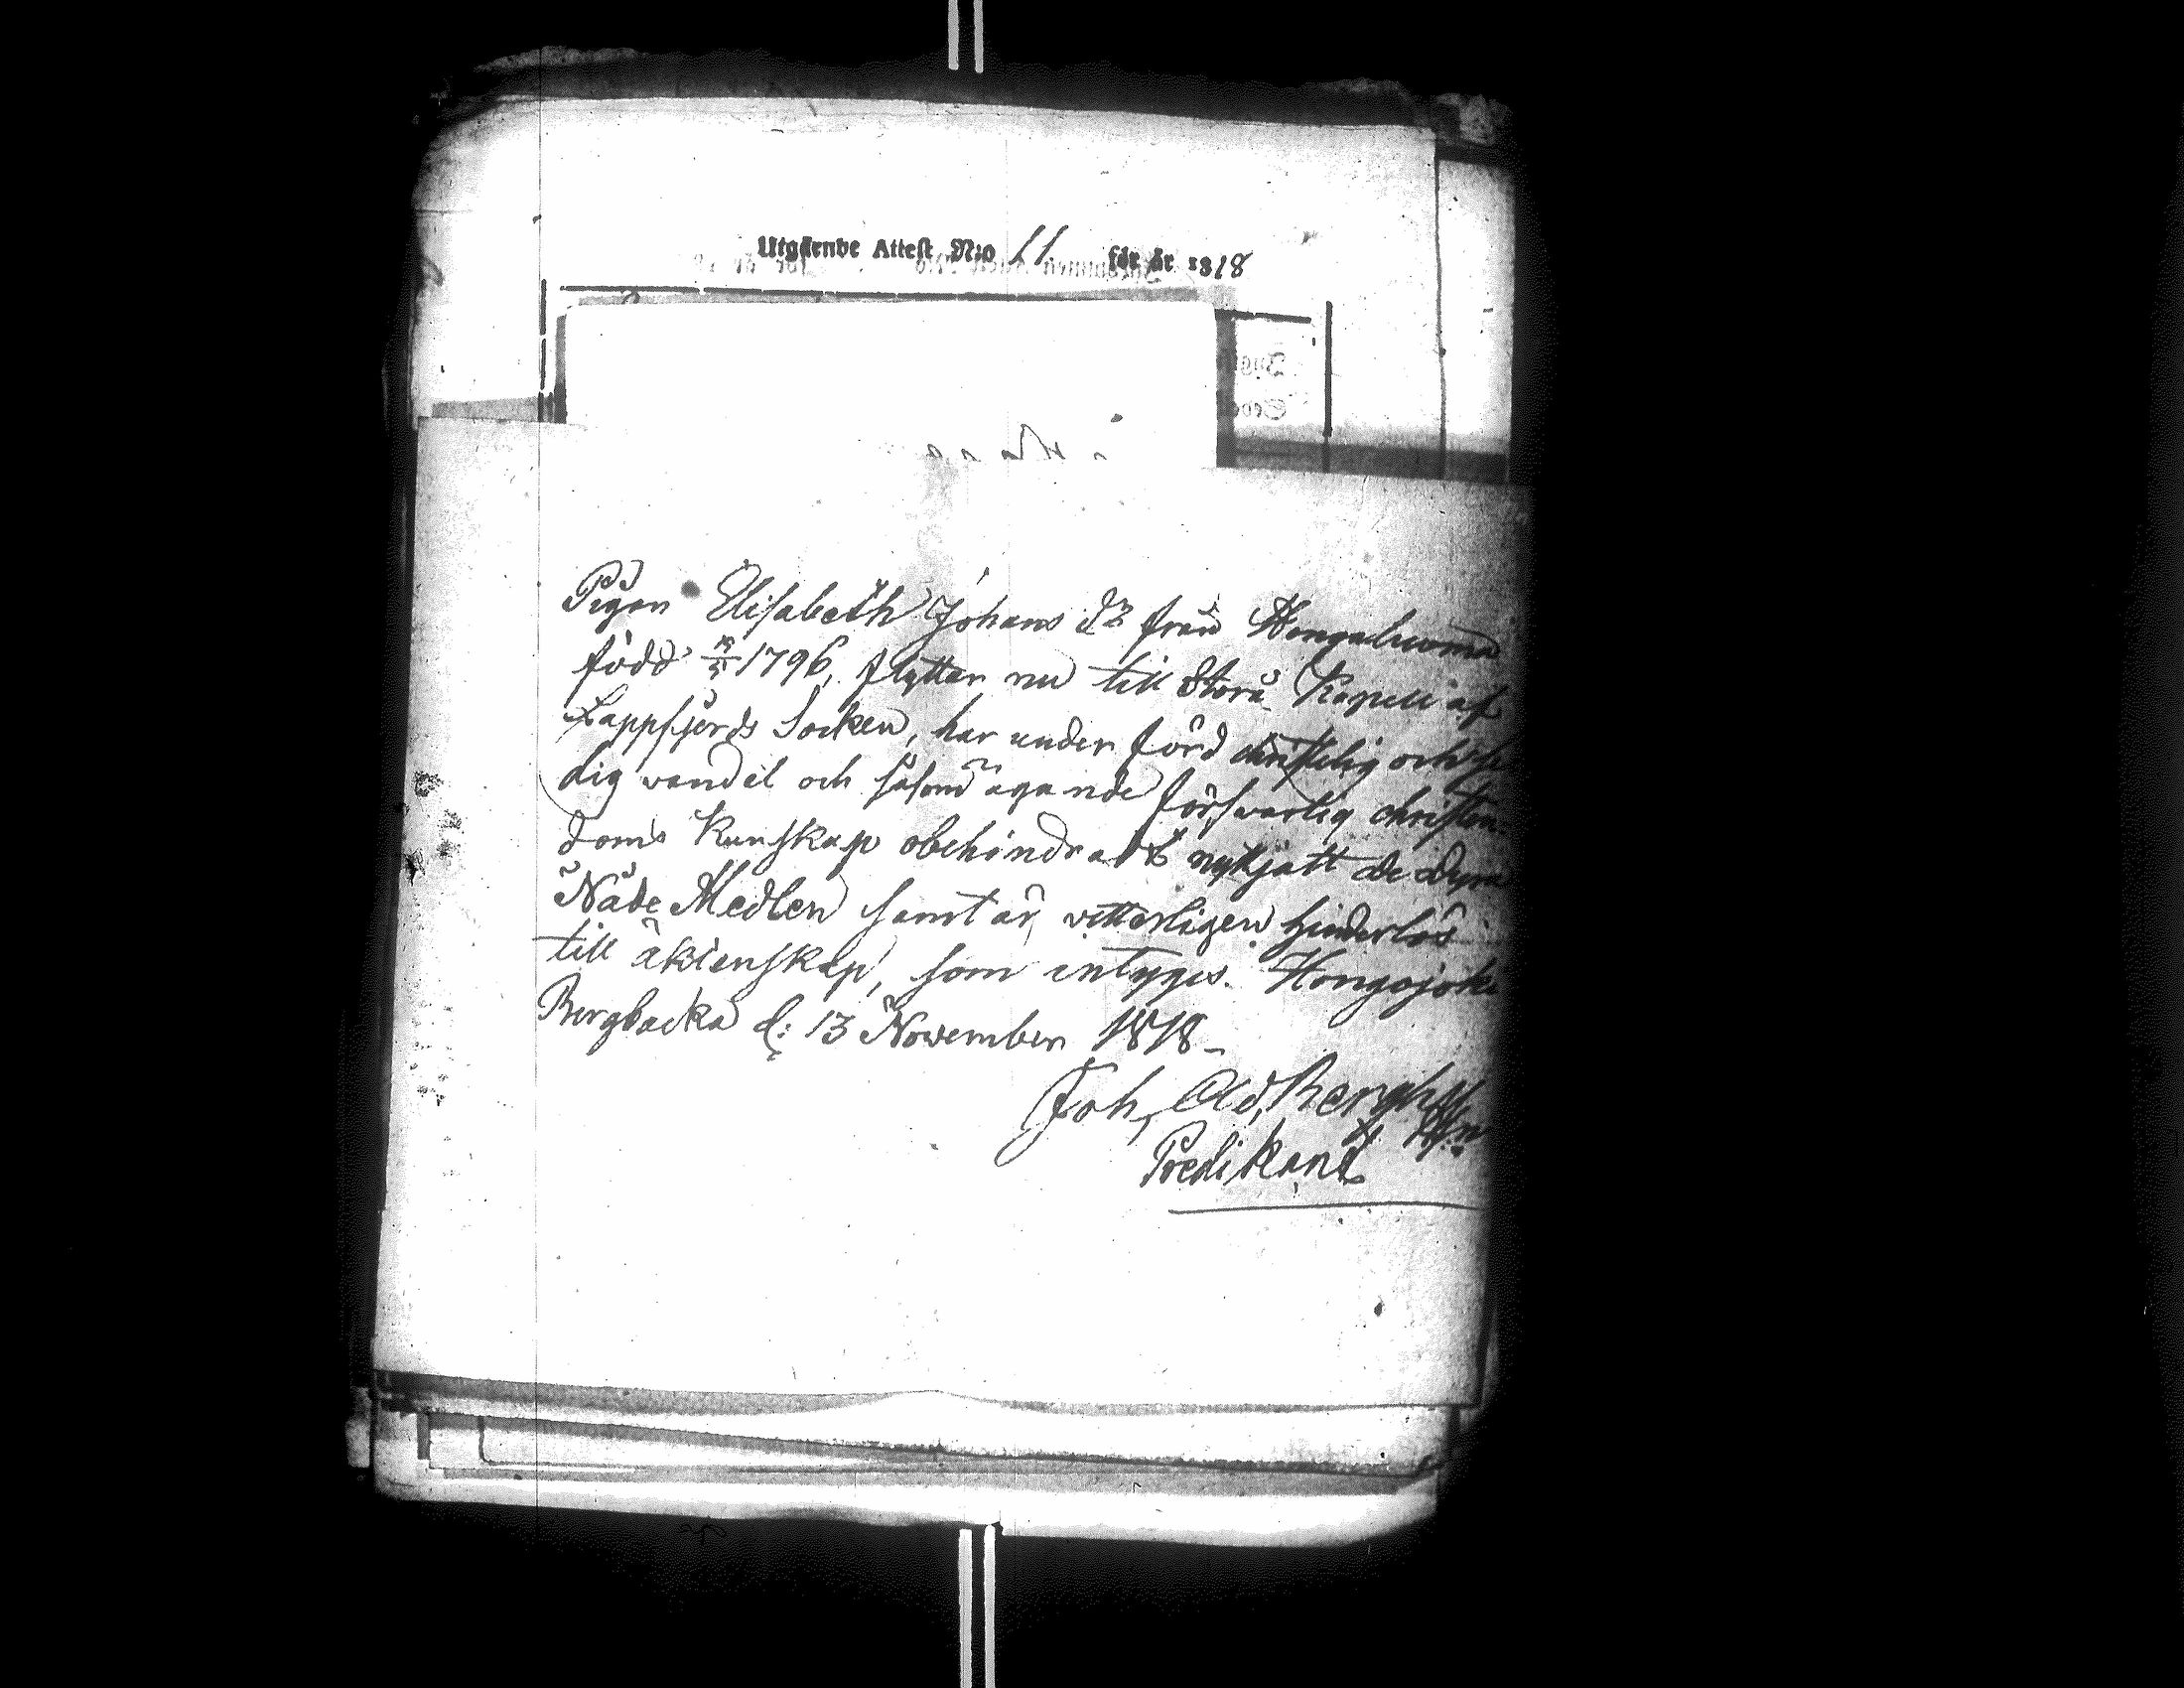 Utgående Attest N:io 11 för år 1818
Pigan Elisabeth Johans d:r från Hongaluoma
född 1796, flyttar nu till Storå Kapell af
Lappfjerds Socken, har under förd christelig och
dig vandel och såsom ägande försvarlig christen-
doms Kunskap obehindradt nytjatt de dyra
Nåde Medlen samt är vetterligen hinderlös
till äktenskap, som intygas. Hongojoki
Bergbacka d: 13 November 1818-
Joh, Ad,
Predikant